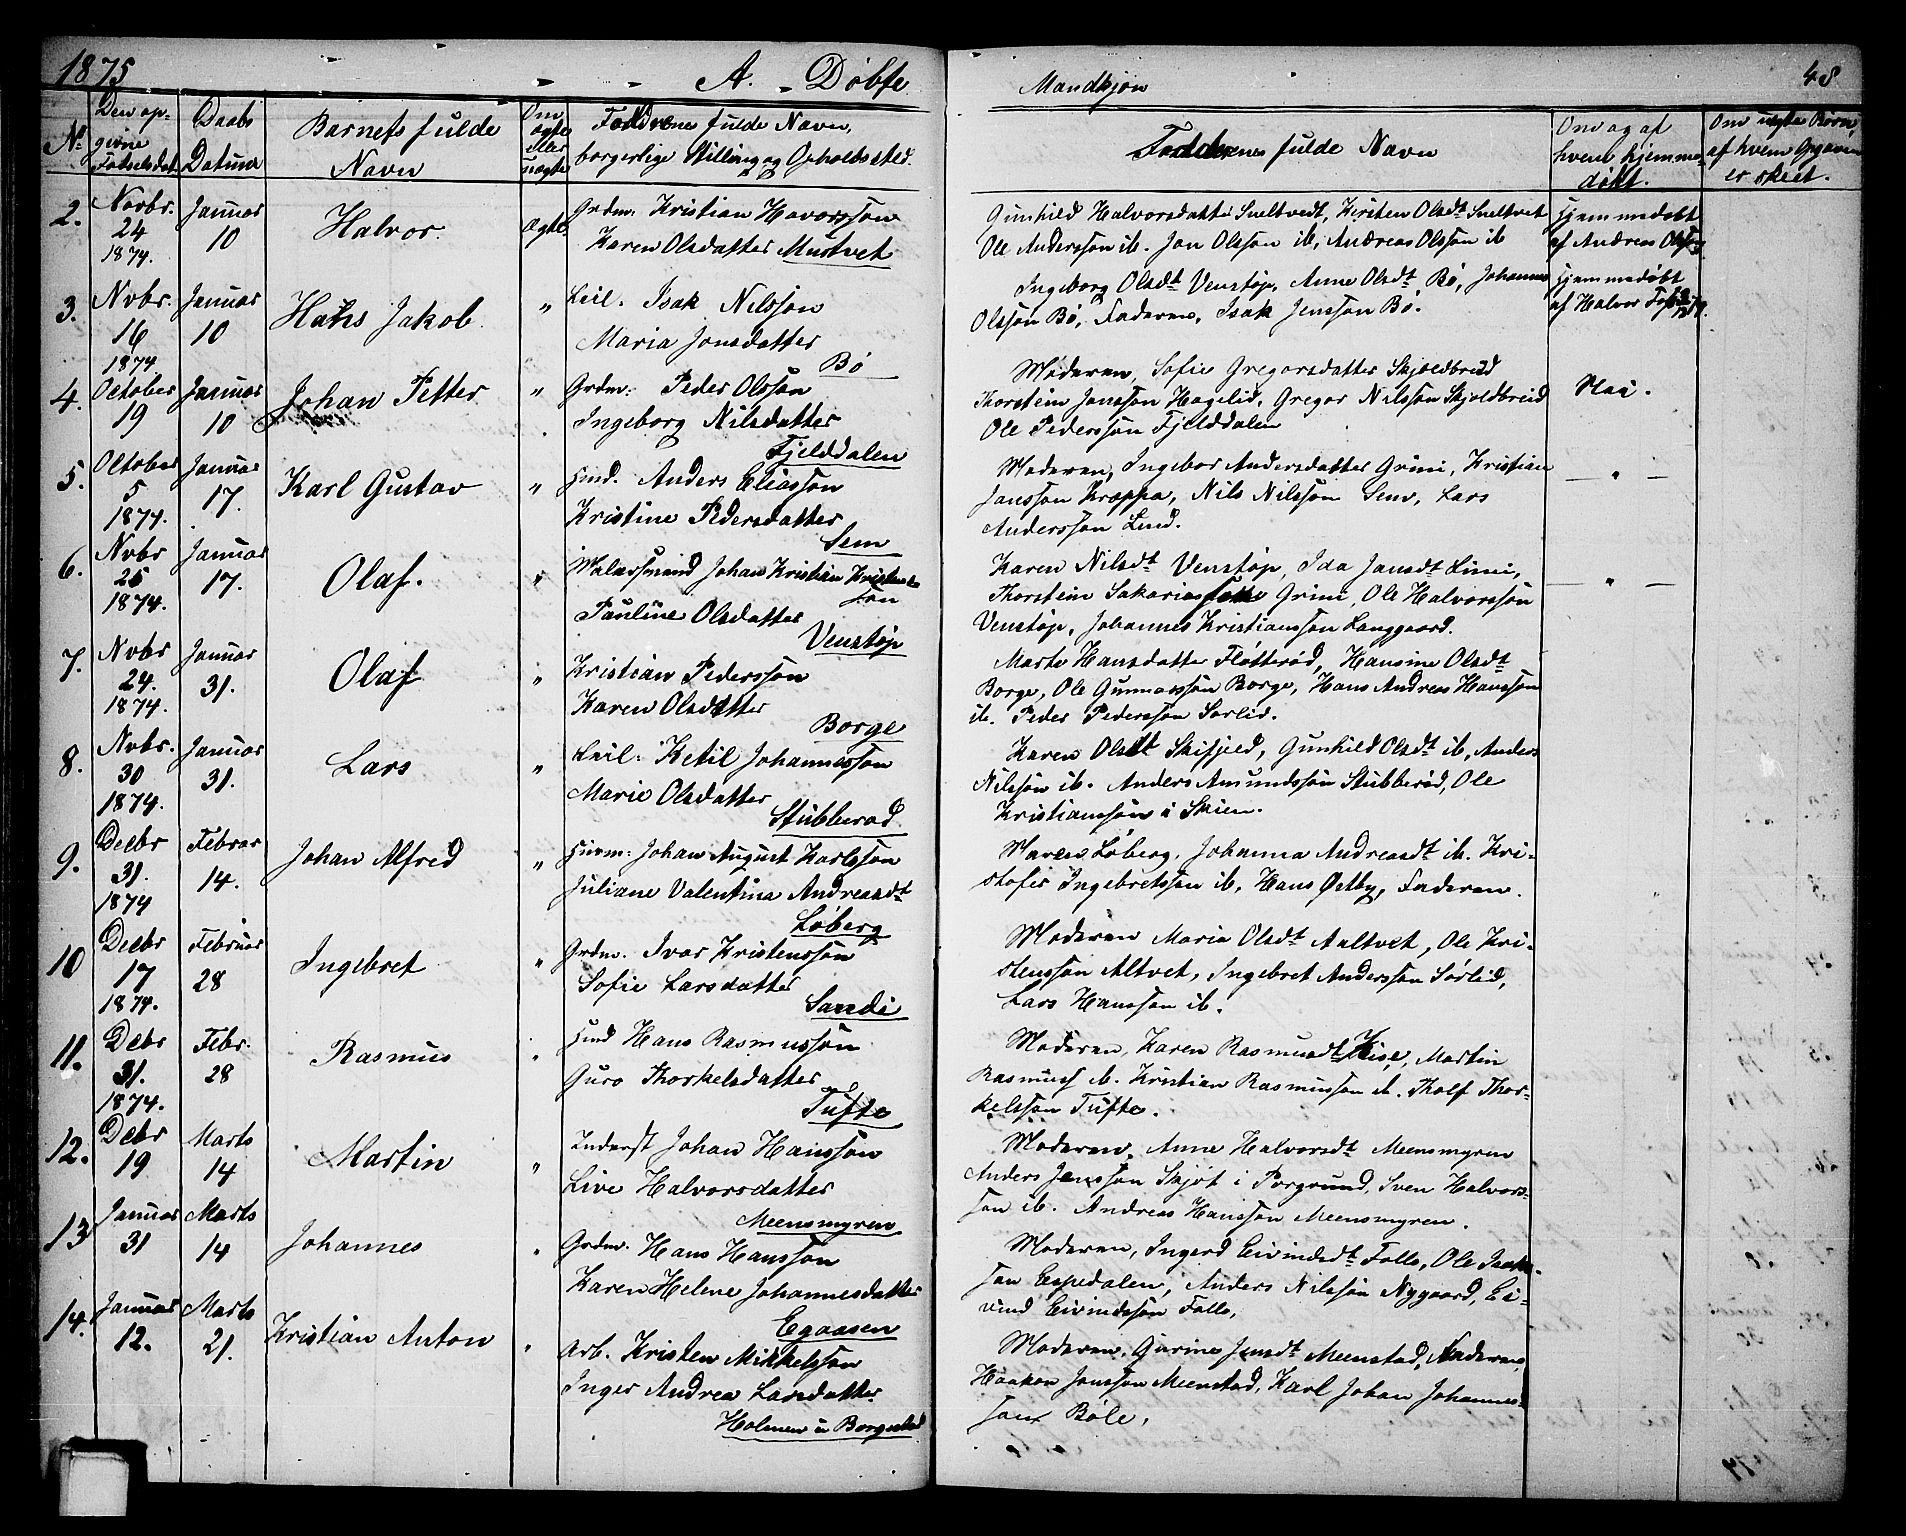 1875 A. Døbte Mandkjøn 48
No Den opgivne Fødselsdat. Daabs Datum Barnets fulde Navn Om ægte eller uægte Forældrene fulde Navn, borgerlige Stilling og Opholdssted. Faddernes fulde Navn Om og af hvem hjemmedøbt. Om uægte Børn, af hvem Opgaven er skeet.
2. Novbr. 24 1874. Januar 10 Halvor. Ægte.
Grdm. Kristian Havorssøn
Karen Olsdatter Mustvet
Gunhild Halvorsdatter Sneltvedt, Kirsten Olsdt Sneltvet
Ole Anderssøn ib. Jon Olssøn ib, Andreas Olssøn ib
Hjemmedøbt
af Andreas Olssøn
3. Nvbr. 16 1874 Januar 10 Hans Jakob. "
Leil. Isak Nilssøn
Maria Jonsdatter
Bø
Ingeborg Olsdt Venstøp, Anne Olsdt Bø, Johannes
Olssøn Bø, Faderen, Isak Jenssøn Bø.
Hjemmedøbt
af Halvor
4. October 19 Januar 10 Johan Petter "
Grdm: Peder Olssøn
Ingeborg Nilsdatter
Fjelddalen
Moderen, Sofie Gregorsdatter Skjoldbreid
Thorstein Jonssøn Hagelid, Gregor Nilssøn Skjoldbreid
Ole Pederssøn Fjelddalen
Nei.
5. Oktober 5 1874. Januar 17. Karl Gustav "
Hmd. Anders Eliassøn
Kristine Pedersdatter
Sem
Moderen, Ingebor Andersdatter Grini, Kristian
Janssøn Kroppa, Nils Nilssøn Sem, Lars
Anderssøn Lund.
— " —
6. Nvbr 25 1874. Januar 17. Olaf. "
Malersvend Johan Kristian Kristens
søn
Pauline Olsdatter
Venstøp
Karen Nilsdt Venstøp, Ida Jansdt Limi,
Thorstein Sakariassøn Grini, Ole Halvorssøn
Venstøp, Johannes Kristianssøn Langgaard.
— " —
7. Nvbr 24. 1874. Januar 31. Olaf "
Kristian Pederssøn
Karen Olsdatter
Borge
Marte Hansdatter Fløtterød, Hansine Olsdt
Borge, Ole Gunnarssøn Borge, Hans Andreas Hanssøn
ib. Peder Pederssøn Sørlid.
8. Nvbr. 30 1874. Januar 31. Lars "
Leil. Ketil Johannessøn
Marie Olsdatter
Stubberød
Karen Olsdt Skifjeld, Gunhild Olsdt ib, Anders
Nilssøn ib. Anders Amundssøn Stubberød, Ole
Kristianssøn i Skien.
9. Decbr 31. 1874 Februar 14. Johan Alfred "
Husm. Johan August Karlssøn
Juliane Valentina Andreasdt
Løberg
Maren Løberg, Johanna Andreasdt ib. Kri-
stofer Ingebretssøn ib, Hans Østby, Faderen.
10 Decbr 17 1874. Februar 28 Ingebret "
Grdm. Ivar Kristenssøn
Sofie Larsdatter
Sandi
Moderen Maria Olsdt Aaltvet, Ole Kri-
stenssøn Altvet, Ingebret Anderssøn Sørlid,
Lars Hanssøn ib.
11. Decbr 31. 1874. Febr. 28 Rasmus "
Hmd Hans Rasmussøn
Guro Thorkelsdatter
Tufte
Moderen, Karen Rasmusdt Kise, Martin
Rasmuss ib. Kristian Rasmussøn ib. Tholf Thor-
kelssøn Tufte.
12. Debr 19 Marts 14 Martin "
Inderst Johan Hanssøn
Live Halvorsdatter
Meensmyren
Moderen, Anne Halvorsdt Meensmyren
Anders Jenssøn Skjøt i Porgrund, Sven Halvors-
søn ib. Andreas Hanssøn Meensmyren.
13 Januar 31 Marts 14 Johannes "
Grdm. Hans Hanssøn
Karen Helene Johannesdatter
Egaasen
Moderen, Ingerd Eivindsdt Follo, Ole Isaks-
søn Espedalen, Anders Nilssøn Nygaard, Ei-
vind Eivindssøn Follo,
14. Januar 12. Marts 21. Kristian Anton "
Arb. Kristen Mikkelssøn
Inger Andrea Larsdatter
Holmen u Borgestad
Moderen, Gurine Jensdt Meenstad, Faderen,
Haakon Jonssøn Meenstad, Karl Johan Johannes-
søn Bøle,